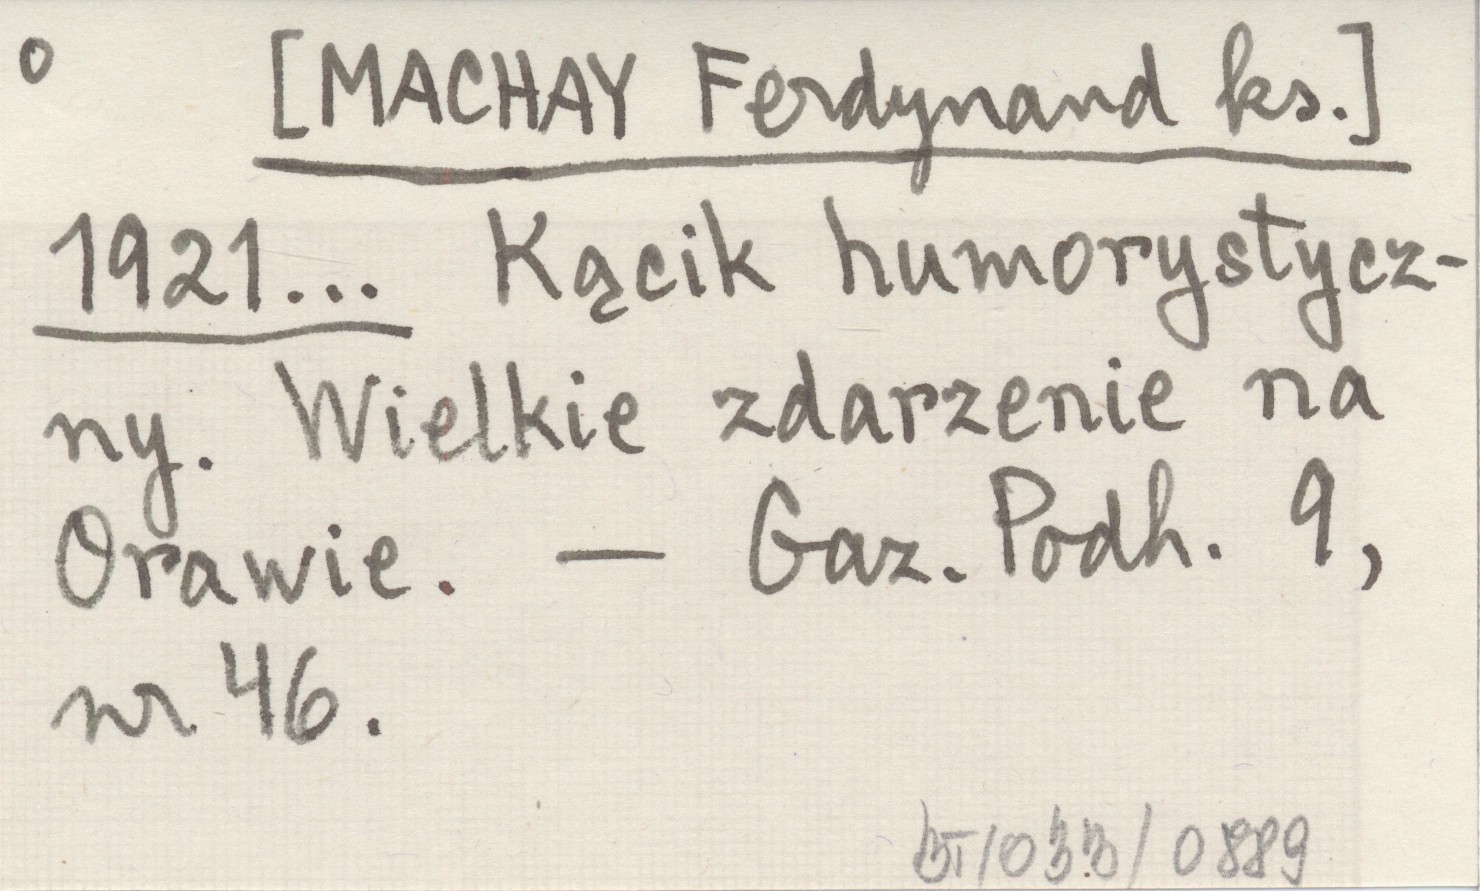 o [MACHAY Ferdynand ks.]
1921... Kącik humorystycz-
ny. Wielkie zdarzenie na
Orawie. — Gaz. Podh. 9,
nr 46.
BT/033/0889